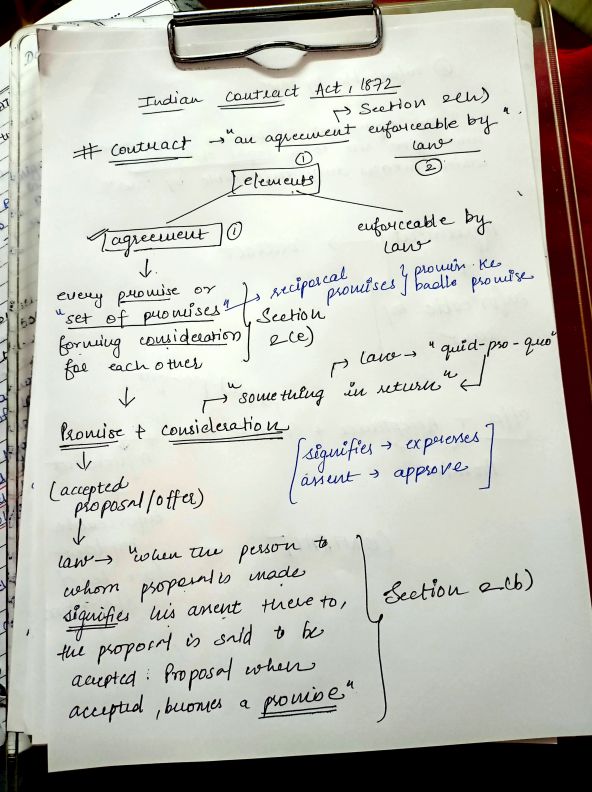 Indian Contract Act, 1872
↱ Section 2(h)
# contract → "an agreement enforceable by law".
① ②
elements
agreement ①
enforceable by
law
↓
every promise or
"set of promises" → reciporcal promises } promise ke badle promise
forming consideration } Section 2(e)
for each other
↱ law → "quid-pro-quo"
↓ ↱ "something in return" ↵
Promise + consideration
↓
(accepted
proposal/offer)
[signifies → expresses
assent → approve]
↓
law → "when the person to
whom proposal is made
signifies his assent there to,
the proposal is said to be
accepted. Proposal when
accepted, becomes a promise"
Section 2(b)